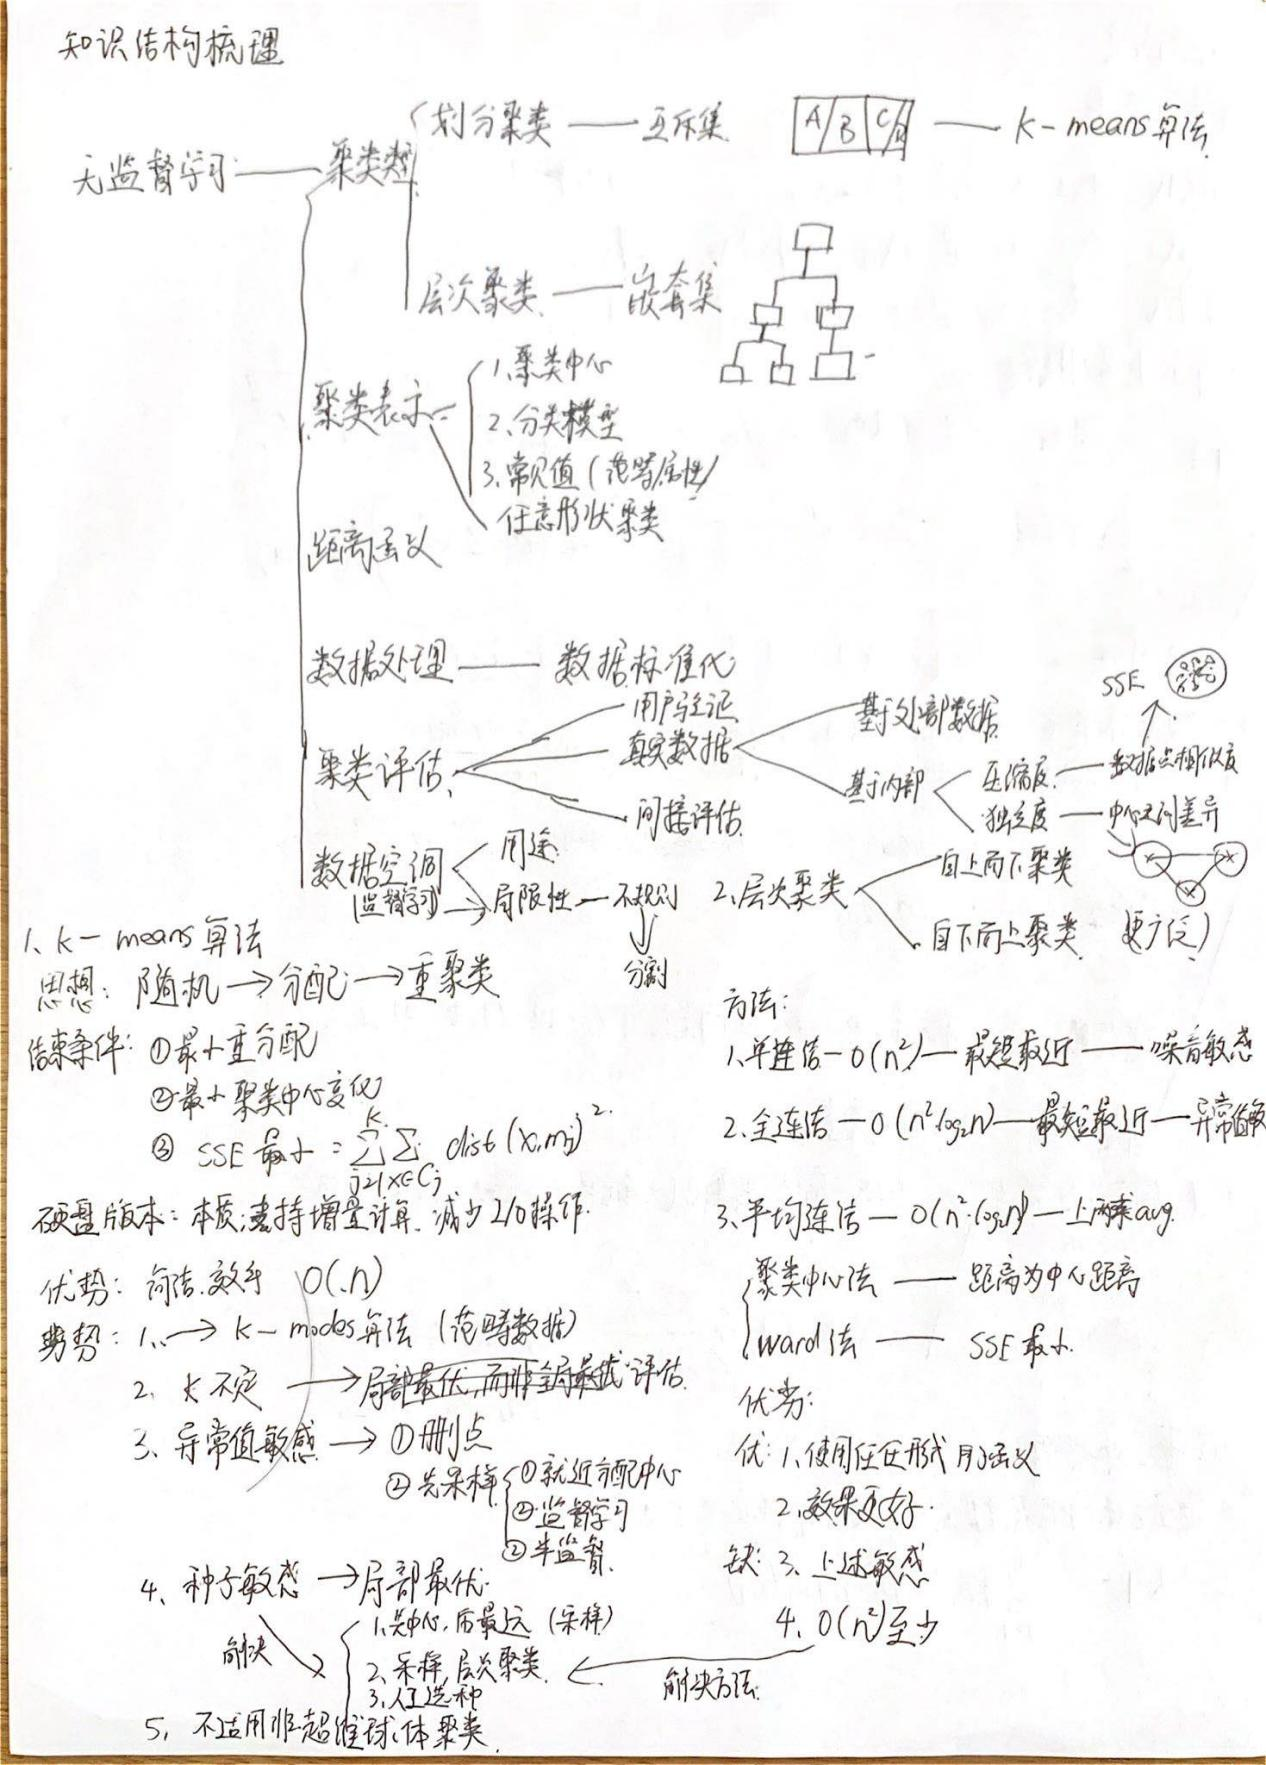 知识结构梳理
无监督学习 — 聚类类型
划分聚类 — 互斥集 A B C D — K-means算法
层次聚类 — 嵌套集
聚类表示
1、聚类中心
2、分类模型
3、常见值(范畴属性)
任意形状聚类
距离函义
数据处理 — 数据标准化
聚类评估
用户验证
真实数据
间接评估
基于外部数据
基于内部
压缩度 — 数据点相似度
SSE
独立度 — 中心之间差异
数据空洞
(监督学习)
用途
局限性 — 不规则
分割
1、K-means算法
思想: 随机 → 分配 → 重聚类
结束条件: ①最小重分配
②最小聚类中心变化
③ SSE最小 = ∑ⱼ₌₁ᴷ ∑x∈Cⱼ dist(x,mj)²
硬盘版本: 本质:支持增量计算,减少I/O操作.
优势: 简洁.效率 O(n)
劣势: 1、→ K-modes算法 (范畴数据)
2、K不定 → 评估
3、异常值敏感 → ①删点
②先采样
①就近分配中心
②监督学习
②半监督
4、种子敏感 → 局部最优
解决
1、先中心,后最远 (采样)
2、采样,层次聚类
3、人工选种
5、不适用非超维球体聚类
2、层次聚类
自上而下聚类
自下而上聚类 (更广泛)
方法:
1、单连结 — O(n²) — 最短最近 — 噪音敏感
2、全连结 — O(n²·log₂n) — 最短最近 — 异常值敏
3、平均连结 — O(n²·log₂n) — 上两求avg
聚类中心法 — 距离为中心距离
ward法 — SSE最小
优劣:
优: 1、使用任 形式 函义
2、效果更好
缺: 3、上述敏感
4、O(n²)至少
解决方法